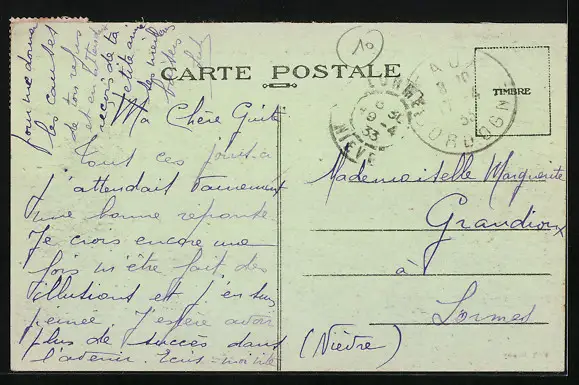 CARTE POSTALE
TIMBRE
10
LORMES
NIEVRE
DORDOGNE
Ma Chère Guite
Tout ces jours-ci
j'attendait vainement
une bonne réponse.
Je crois encore une
fois m'être fait des
illusions et j'en suis
peinée. J'espère avoir
plus de succès dans
l'avenir. Ecris-moi vite
pour me donner
les causes
de ton refus
et en attendant
reçois de ta
petite amie
ses meilleurs
baisers
Mademoiselle Marguerite
Grandioux
à
Lormes
(Nièvre)